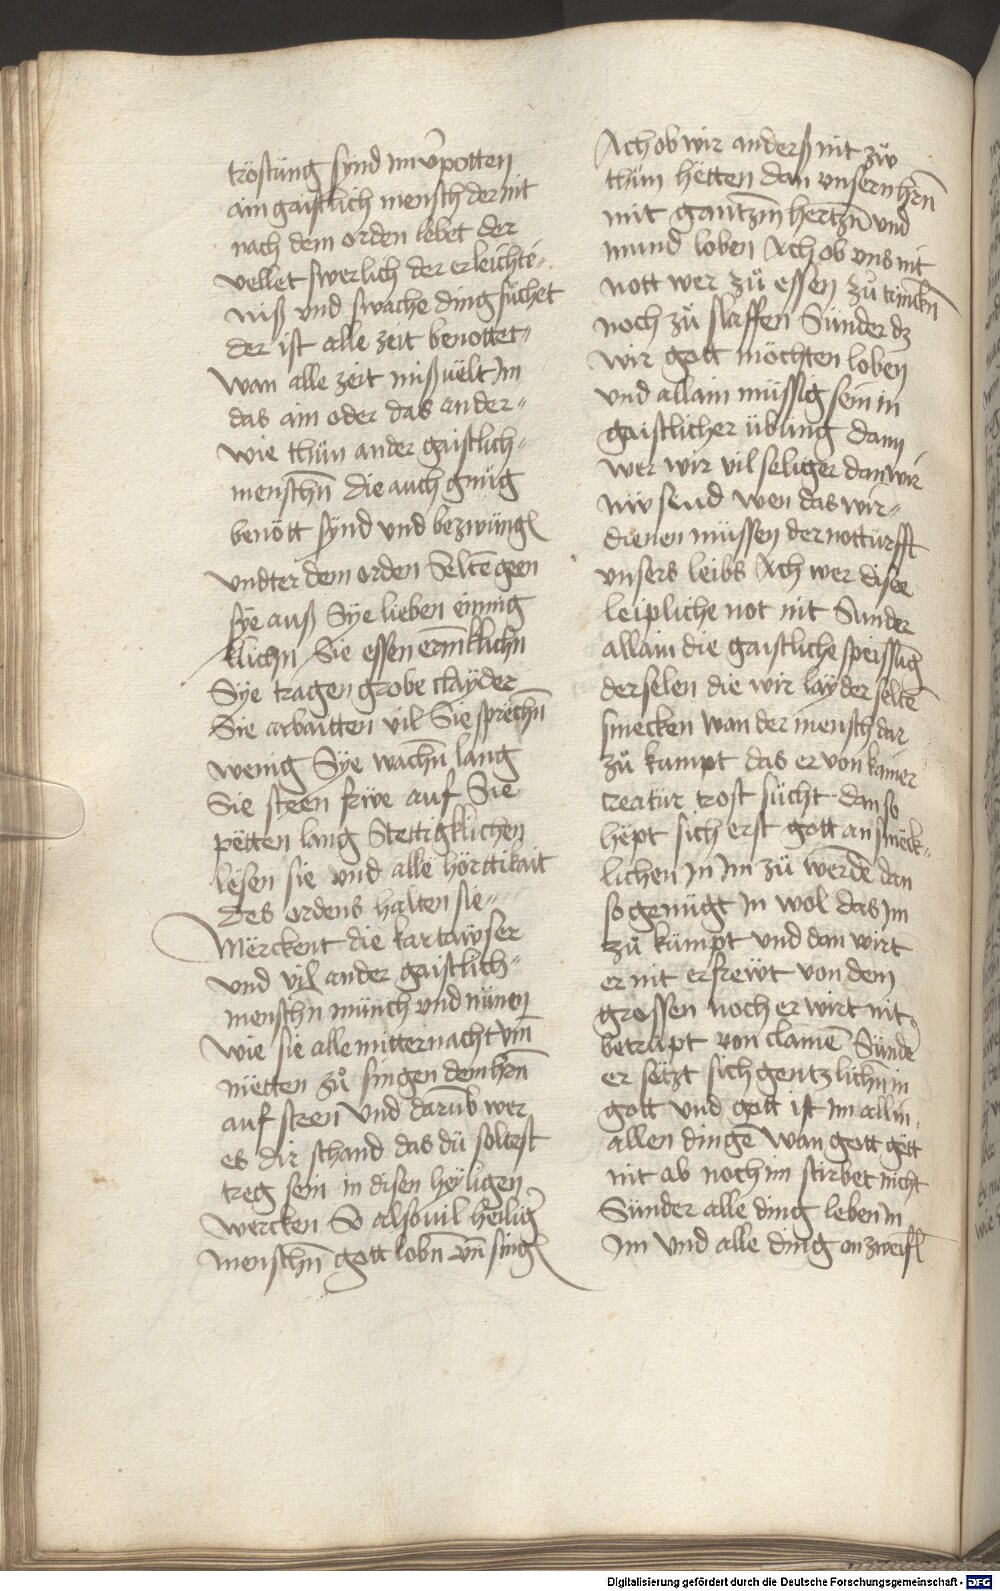 tröstüng synd im v̄potten
ain gaistlich mensch der nit
nach dem orden lebet der
vellet swerlich der erleichte=
niß vnd swache ding sůchet
der ist alle zeit benottet=
wan alle zeit mißuëlt Im
das ain oder das ander=
wie thün ander gaistlich=
menschn̄ die auch gnüg
benött synd vnd bezwüng
vndter dem orden Seltē geen
sye auß Sye lieben einnig
klichn Sie essen ermklichn̄
Sÿe tragen grobe clayder
Sie arbaitten vil Sie sprechn̄
wenig Sÿe wachn̄ lang
Sie steen frwe auf Sie
pëtten lang Stettigklichen
lesen sie vnd alle hörttikait
Des ordens halten sie=
Mërckent die kartawser
vnd vil ander gaistlich=
menschn münch vnd nünen
wie sie alle mitternacht vm̄
mëtten zů singen dem hrn̄
auf steen vnd darub wer
es dir schand das dü soltest
treg sein in disen heÿligen
wercken So alsouil heilig
menschn̄ gott lobn̄ vn̄ sing
Ach ob wir anderß nit zůo
thün hëtten dan vnsern hrn̄
mit gantzm̄ hertzn̄ vnd
mund loben Ach ob vns nit
nott wer zů essen zů trinkn̄
noch zů slaffen Sünder dz
wir gott möchten loben
vnd allain müssig sein in
gaistlicher übung dann
wer wir vil seliger dan wir
nw send wen das wir=
dienen müssen der nottürfft
vnsers leibs Ach wer disee
leipliche not nit Sunder
allain die gaistliche speissūg
der selen die wir layder seltē
smecken wan der mensch dar
zů kumpt das er von kainer
creatür trost sücht dan so
hëpt sich erst gott an smeck=
lichen In Im zü werdē dan
so genügt In wol das Im
zů kümpt vnd dan wirt
er nit erfrewt von dem
grossen noch er wirt nit
betrupt von clainē Sünde
er setzt sich gentzlichn̄ in
gott vnd gott ist Im all in
allen dingē wan gott gett
nit ab noch im stirbet nicht
Sünder alle ding leben In
Im vnd alle ding on zweifl
Digitalisierung gefördert durch die Deutsche Forschungsgemeinschaft - DFG